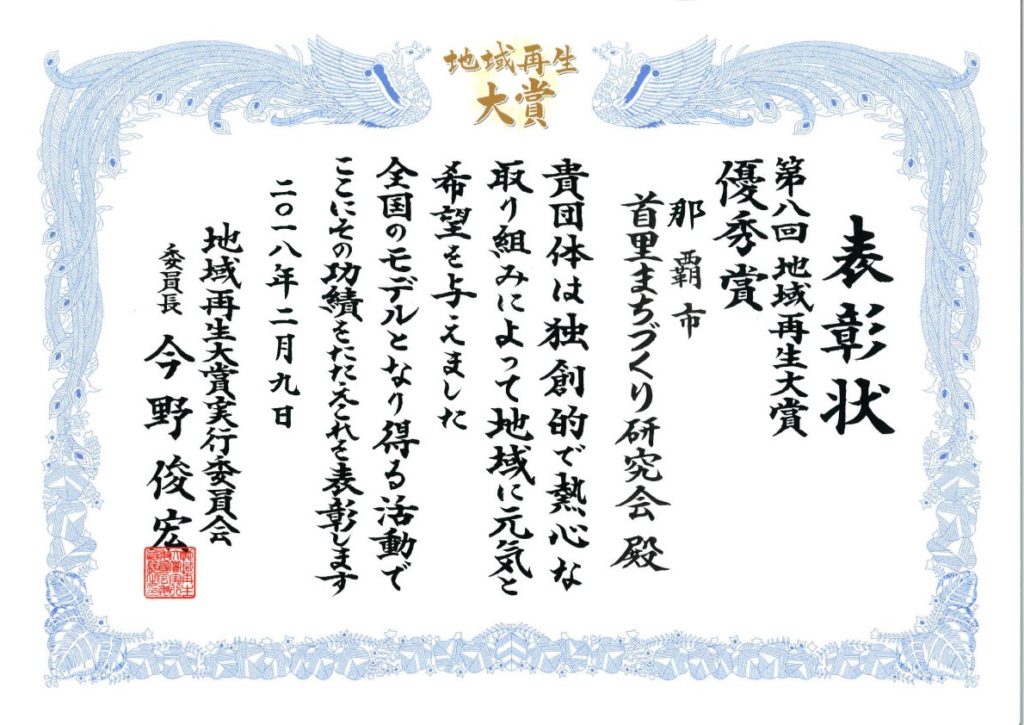 地域再生
大賞
表彰状
第八回 地域再生大賞
優秀賞
那覇市
首里まちづくり研究会 殿
貴団体は独創的で熱心な
取り組みによって地域に元気と
希望を与えました
全国のモデルとなり得る活動で
ここにその功績をたたえこれを表彰します
二〇一八年二月九日
地域再生大賞実行委員会
委員長 今野俊宏